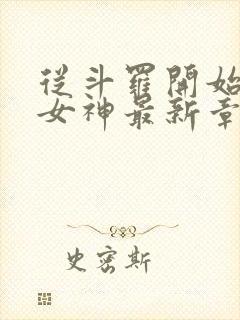 從斗羅開始
女神最新章
史密斯